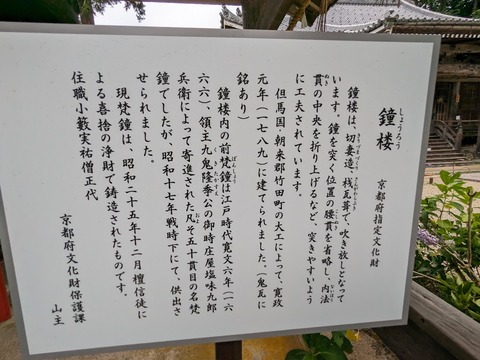 鐘楼
しょうろう
京都府指定文化財
鐘楼は、切妻造、桟瓦葺で、吹き放しとなって
います。鐘を突く位置の腰貫を省略し、内法
貫の中央を折り上げるなど、突きやすいよう
に工夫されています。
但馬国・朝来郡竹田町の大工によって、寛政
元年（一七八九）に建てられました。（鬼瓦に
銘あり）
鐘楼内の前梵鐘は江戸時代寛文六年（一六
六六）、領主九鬼隆季公の御時庄屋塩味九郎
兵衛によって寄進された凡そ五十貫目の名梵
鐘でしたが、昭和十七年戦時下にて、供出さ
せられました。
現梵鐘は、昭和二十五年十二月檀信徒に
よる喜捨の浄財で鋳造されたものです。
住職小籔実祐僧正代
京都府文化財保護課
山主